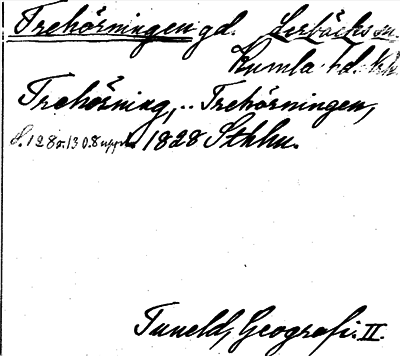 Trehörningen gd. Lerbäcks sn.
Kumla hd.
Trehörning, .. Trehörningen,
S. 128 o. 130 8 uppl. 1828 Sthlm.
Tuneld, Geografi. II.